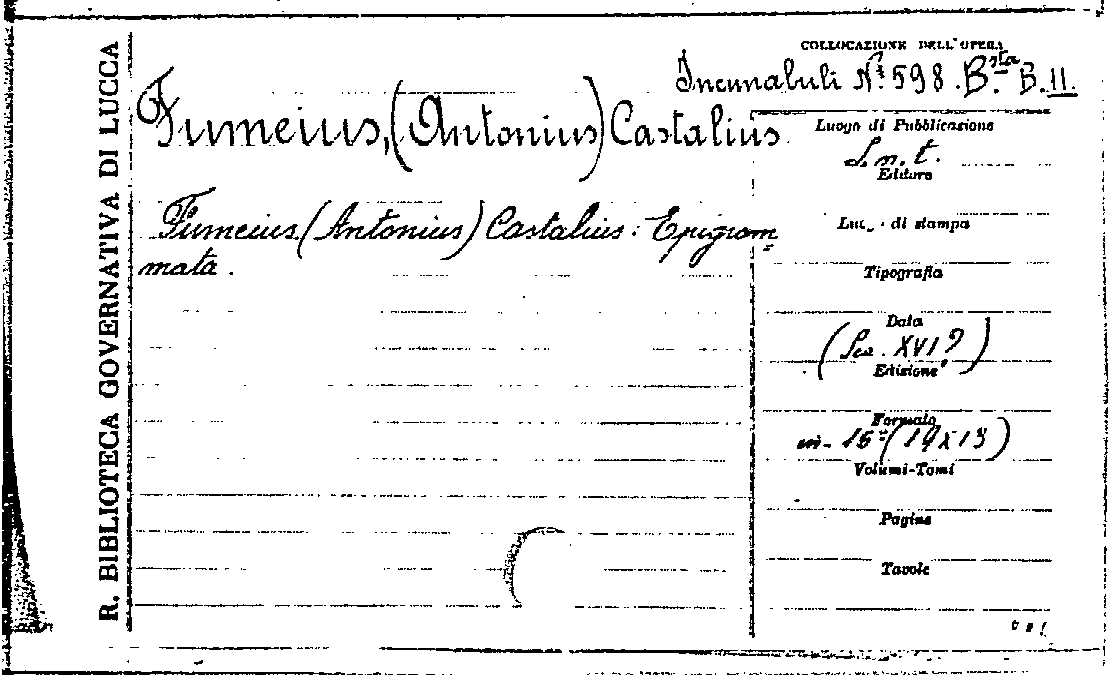 R. BIBLIOTECA GOVERNATIVA DI LUCCA
COLLOCAZIONE DELL'OPERA
Incunabuli N.° 598. B.sta B. 11.
Fumeius, (Antonius) Castalius
Luogo di Pubblicazione
S. n. t.
Editore
Fumeius (Antonius) Castalius: Epigram=
mata.
Luo. di stampa
Tipografia
Data
(Sec. XVI?)
Edizione
Formato
in-16° (19X13)
Volumi-Tomi
Pagine
Tavole